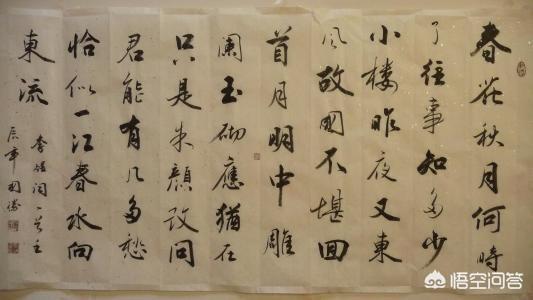 春花秋月何時
了往事知多少
小楼昨夜又東
風故國不堪回
首月明中雕
闌玉砌應猶在
只是朱顏改問
君能有几多愁
恰似一江春水向
東流
李煜詞一首壬
辰年
悟空问答